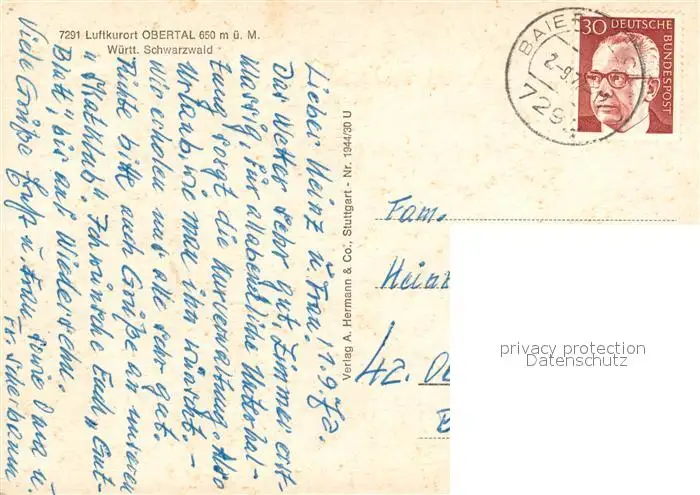 7291 Luftkurort OBERTAL 650 m ü. M.
Württ. Schwarzwald
Lieber Heinz u. Frau! 1.9.72.
Das Wetter sehr gut, Zimmer erst-
klassig, für allabendliche Unterhal-
tung sorgt die Kurverwaltung. Also
Urlaub wie man ihn wünscht. –
Wir erholen uns alle sehr gut.
Richte bitte auch Grüße an unseren
"Skatklub". Ich wünsche Euch "Gut-
Blatt", bis auf Wiedersehn.
Viele Grüße u. Frau, sowie u.
Fr.
Verlag A. Hermann & Co., Stuttgart - Nr. 1944/30 U
BAIER
2.-9.72
729
30 DEUTSCHE
BUNDESPOST
Fam.
Hein
42.
privacy protection
Datenschutz